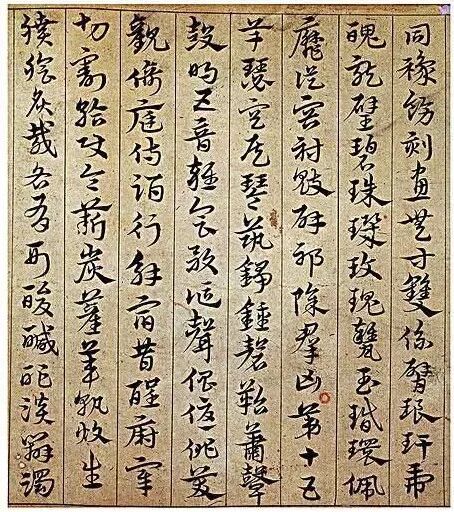 同豫飾刻畫無等雙係臂琅玕虎
魄龍璧碧珠璣玫瑰甕玉玦環佩
靡從容射鬾辟邪除羣凶第十五
竽瑟空侯琴筑箏鍾磬鞀蕭鼙
鼓鳴五音總會歌謳聲倡優俳笑
觀倚庭侍酒行觴宿昔酲廚宰
切割給使令薪炭萑葦孰炊生
膹膾炙胾各有形酸鹹酢淡辨濁